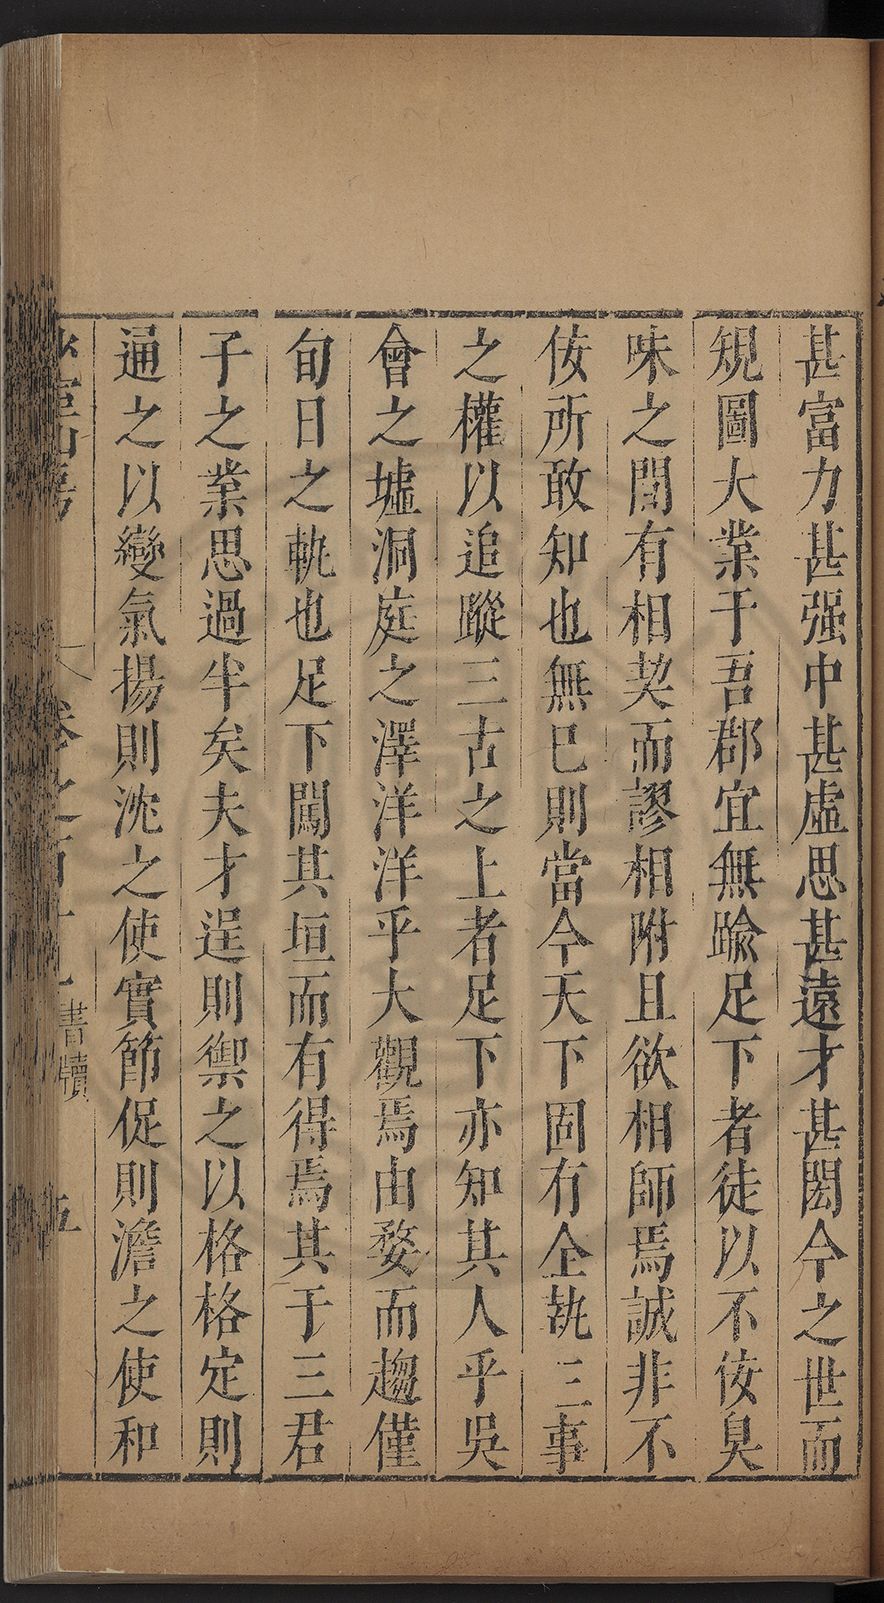 甚富力甚强中甚虛思甚遠才甚閎今之世而
規圖大業于吾郡宜無踰足下者徒以不佞臭
味之間有相契而謬相附且欲相師焉誠非不
佞所敢知也無已則當今天下固有仝執三事
之權以追蹤三古之上者足下亦知其人乎吳
會之墟洞庭之澤洋洋乎大觀焉由婺而趨僅
旬日之軌也足下闖其垣而有得焉其于三君
子之業思過半矣夫才逞則禦之以格格定則
通之以變氣揚則沈之使實節促則澹之使和
卷之百十一 書牘 五